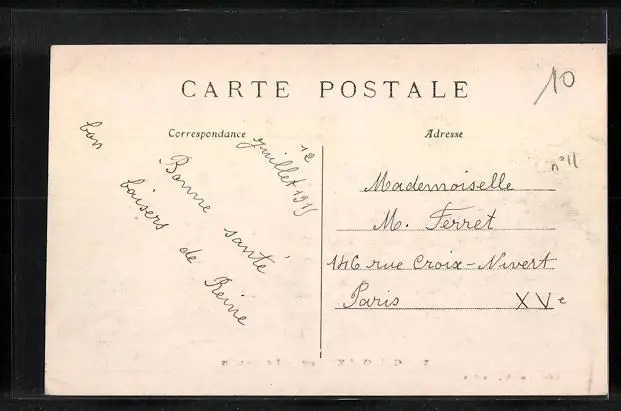 CARTE POSTALE
10
Correspondance
Adresse
12
Juillet 1915
Bonne santé
bons
baisers de Reine
n° 11
Mademoiselle
M. Ferret
146 rue Croix-Nivert
Paris XVe